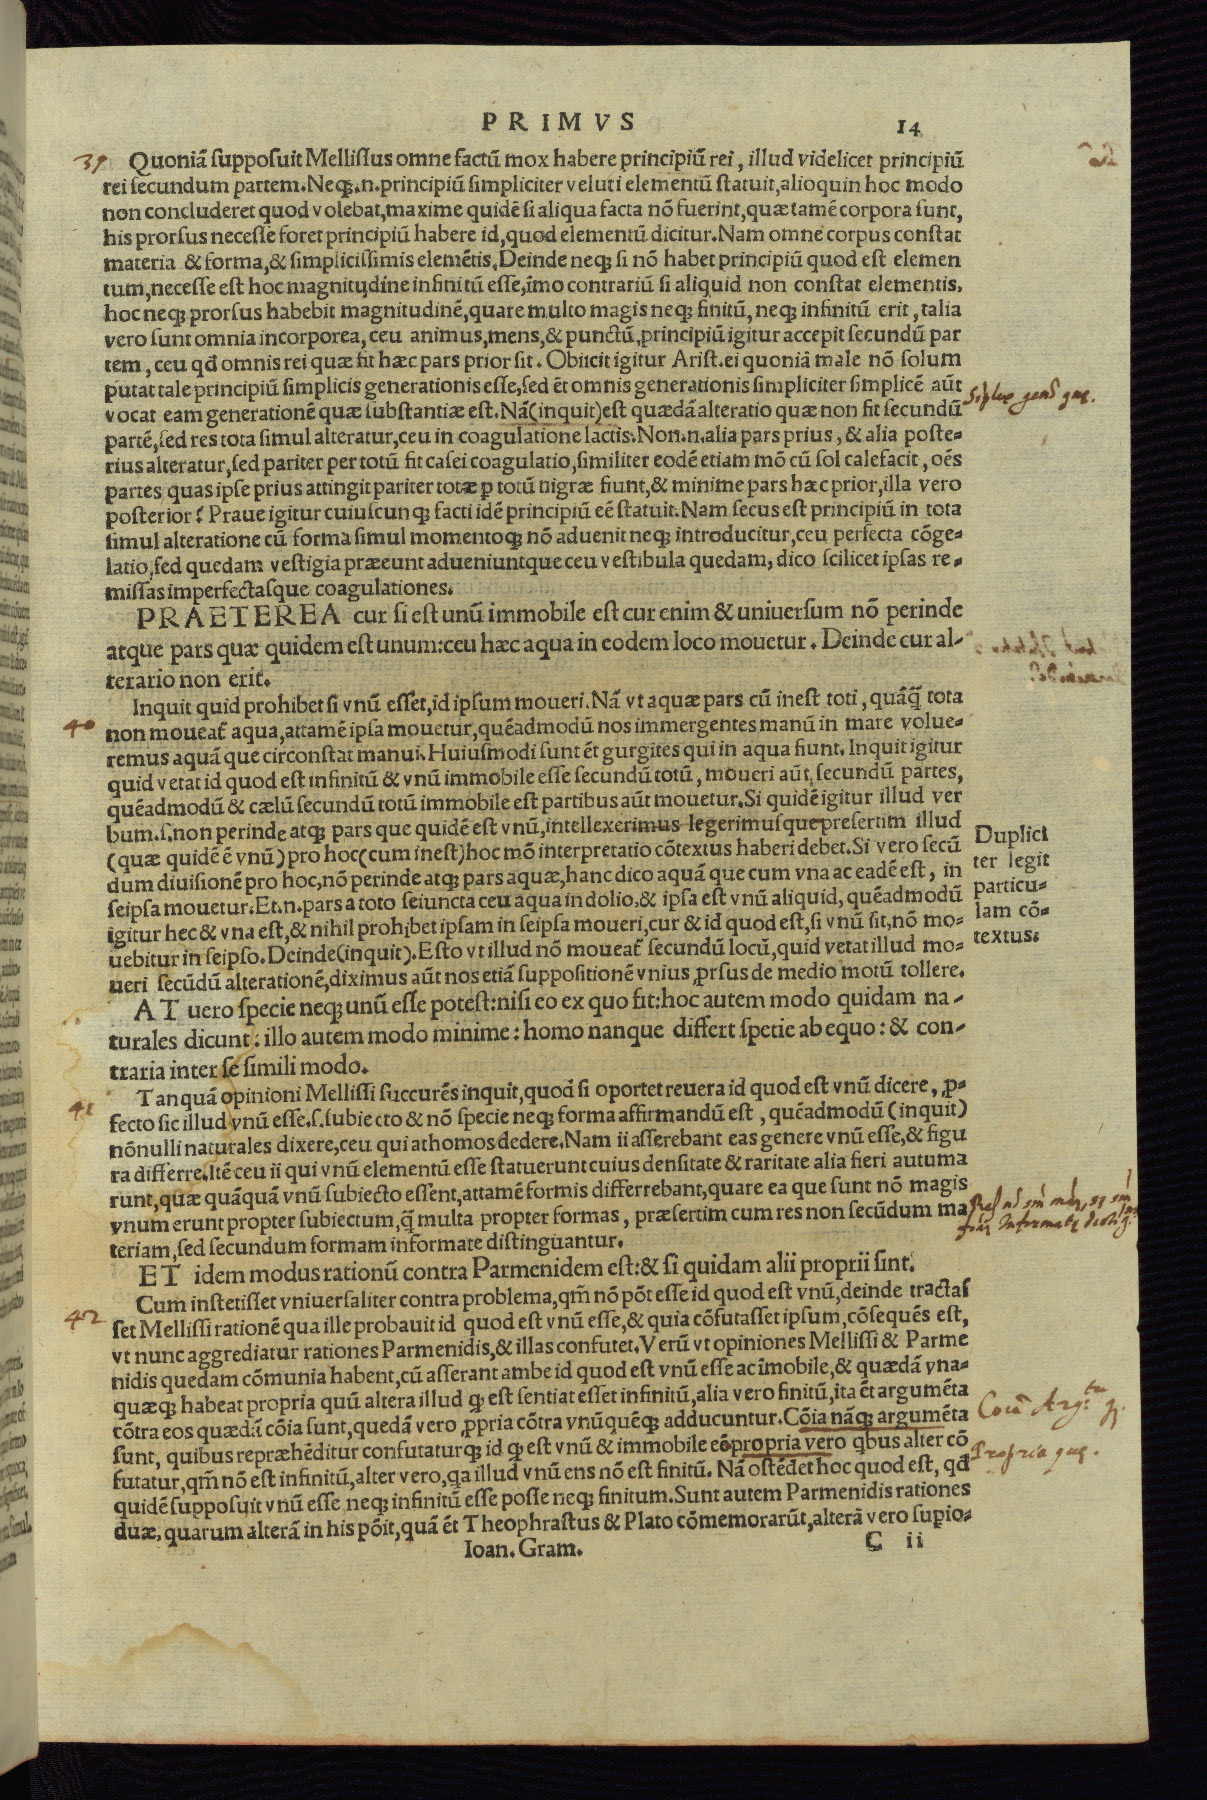 PRIMVS 14
39 Quoniã supposuit Mellissus omne factũ mox habere principiũ rei, illud videlicet principiũ
rei secundum partem. Neq;.n. principiũ simpliciter veluti elementũ statuit, alioquin hoc modo
non concluderet quod volebat, maxime quidẽ si aliqua facta nõ fuerint, quæ tamẽ corpora sunt,
his prorsus necesse foret principiũ habere id, quod elementũ dicitur. Nam omne corpus constat
materia & forma, & simplicissimis elemẽtis. Deinde neq; si nõ habet principiũ quod est elemen
tum, necesse est hoc magnitudine infinitũ esse, ĩmo contrariũ si aliquid non constat elementis.
hoc neq; prorsus habebit magnitudinẽ, quare multo magis neq; finitũ, neq; infinitũ erit, talia
vero sunt omnia incorporea, ceu animus, mens, & punctũ, principiũ igitur accepit secundũ par
tem, ceu qđ omnis rei quæ fit hæc pars prior sit. Obiicit igitur Arist. ei quoniã male nõ solum
putat tale principiũ simplicis generationis esse, sed ẽt omnis generationis simpliciter simplicẽ aũt
vocat eam generationẽ quæ substantiæ est. Nã (inquit) est quædã alteratio quæ non fit secundũ
partẽ, sed res tota simul alteratur, ceu in coagulatione lactis. Non.n. alia pars prius, & alia poste-
rius alteratur, sed pariter per totũ fit casei coagulatio, similiter eodẽ etiam mõ cũ sol calefacit, oẽs
partes quas ipse prius attingit pariter totæ p totũ nigræ fiunt, & minime pars hæc prior, illa vero
posterior? Praue igitur cuiuscunq; facti idẽ principiũ eẽ statuit. Nam secus est principiũ in tota
simul alteratione cũ forma simul momentoq; nõ aduenit neq; introducitur, ceu perfecta cõge-
latio, sed quedam vestigia præeunt adueniuntque ceu vestibula quedam, dico scilicet ipsas re-
missas imperfectasque coagulationes.
PRAETEREA cur si est unũ immobile est cur enim & uniuersum nõ perinde
atque pars quæ quidem est unum: ceu hæc aqua in eodem loco mouetur. Deinde cur al-
terario non erit.
40 Inquit quid prohibet si vnũ esset, id ipsum moueri. Nã vt aquæ pars cũ inest toti, quãq̃ tota
non moueat̃ aqua, attamẽ ipsa mouetur, quẽadmodũ nos immergentes manũ in mare volue-
remus aquã que circonstat manui. Huiusmodi sunt ẽt gurgites qui in aqua fiunt. Inquit igitur
quid vetat id quod est infinitũ & vnũ immobile esse secundũ totũ, moueri aũt, secundũ partes,
quẽadmodũ & cælũ secundũ totũ immobile est partibus aũt mouetur. Si quidẽ igitur illud ver
bum.s. non perinde atq; pars que quidẽ est vnũ, intellexerimus legerimusque presertim illud
(quæ quidẽ ẽ vnũ) pro hoc (cum inest) hoc mõ interpretatio cõtextus haberi debet. Si vero secũ
dum diuisionẽ pro hoc, nõ perinde atq; pars aquæ, hanc dico aquã que cum vna ac eadẽ est, in
seipsa mouetur. Et.n. pars a toto seiuncta ceu aqua in dolio, & ipsa est vnũ aliquid, quẽadmodũ
igitur hec & vna est, & nihil prohibet ipsam in seipsa moueri, cur & id quod est, si vnũ sit, nõ mo-
uebitur in seipso. Deinde (inquit). Esto vt illud nõ moueat̃ secundũ locũ, quid vetat illud mo-
ueri secũdũ alterationẽ, diximus aũt nos etiã suppositionẽ vnius prsus de medio motũ tollere.
Duplici
ter legit
particu-
lam cõ-
textus.
AT uero specie neq; unũ esse potest: nisi eo ex quo fit: hoc autem modo quidam na-
turales dicunt: illo autem modo minime: homo nanque differt spetie ab equo: & con-
traria inter se simili modo.
41 Tanquã opinioni Mellissi succurẽs inquit, quod si oportet reuera id quod est vnũ dicere, p-
fecto sic illud vnũ esse.s. subiecto & nõ specie neq; forma affirmandũ est, quẽadmodũ (inquit)
nõnulli naturales dixere, ceu qui athomos dedere. Nam ii asserebant eas genere vnũ esse, & figu
ra differre. Itẽ ceu ii qui vnũ elementũ esse statuerunt cuius densitate & raritate alia fieri autuma
runt, quæ quãquã vnũ subiecto essent, attamẽ formis differrebant, quare ea que sunt nõ magis
vnum erunt propter subiectum, q̃ multa propter formas, præsertim cum res non secũdum ma
teriam, sed secundum formam informate distinguantur.
ET idem modus rationũ contra Parmenidem est: & si quidam alii proprii sint.
42 Cum instetisset vniuersaliter contra problema, qm̃ nõ põt esse id quod est vnũ, deinde tractas
set Mellissi rationẽ qua ille probauit id quod est vnũ esse, & quia cõfutasset ipsum, cõsequẽs est,
vt nunc aggrediatur rationes Parmenidis, & illas confutet. Verũ vt opiniones Mellissi & Parme
nidis quedam cõmunia habent, cũ asserant ambe id quod est vnũ esse ac ĩmobile, & quædã vna-
quæq; habeat propria quũ altera illud q; est sentiat esset infinitũ, alia vero finitũ, ita ẽt argumẽta
cõtra eos quædã cõia sunt, quedã vero ppria cõtra vnũquẽq; adducuntur. Cõia nãq; argumẽta
sunt, quibus repræhẽditur confutaturq; id q; est vnũ & immobile eẽ propria vero qbus alter cõ
futatur, qm̃ nõ est infinitũ, alter vero, qa illud vnũ ens nõ est finitũ. Nã ostẽdet hoc quod est, qđ
quidẽ supposuit vnũ esse neq; infinitũ esse posse neq; finitum. Sunt autem Parmenidis rationes
duæ, quarum alterã in his põit, quã ẽt Theophrastus & Plato cõmemorarũt, alterã vero supio-
Propria quę.
Ioan. Gram. C ii